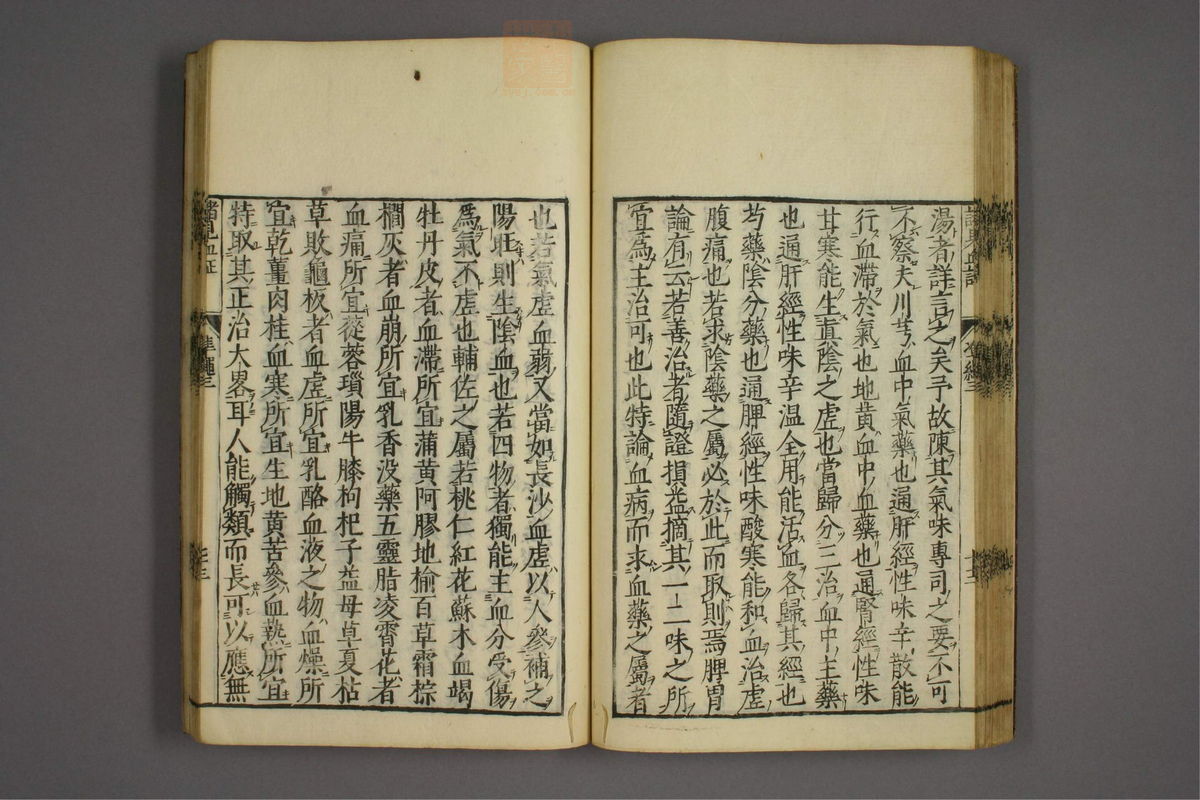 湯者詳言之矣予故陳其氣味專司之要不可
不察夫川芎血中氣藥也通肝經性味辛散能
行血滯於氣也地黄血中血藥也通腎經性味
甘寒能生眞陰之虛也當歸分三治血中主藥
也通肝經性味辛温全用能活血各歸其經也
芍藥陰分藥也通脾經性味酸寒能和血治虛
腹痛也若求陰藥之屬必於此而取則焉脾胃
論有云若善治者隨證損益摘其一二味之所
宜為主治可也此特論血病而求血藥之屬者
也若氣虛血弱又當如長沙血虛以人參補之
陽旺則生陰血也若四物者獨能主血分受傷
為氣不虛也輔佐之屬若桃仁紅花蘇木血竭
牡丹皮者血滯所宜蒲黄阿膠地榆百草霜棕
櫚灰者血崩所宜乳香没藥五靈脂凌霄花者
血痛所宜蓯蓉瑣陽牛膝枸杞子益母草夏枯
草敗龜板者血虛所宜乳酪血液之物血燥所
宜乾薑肉桂血寒所宜生地黄苦參血熱所宜
特取其正治大畧耳人能觸類而長可以應無